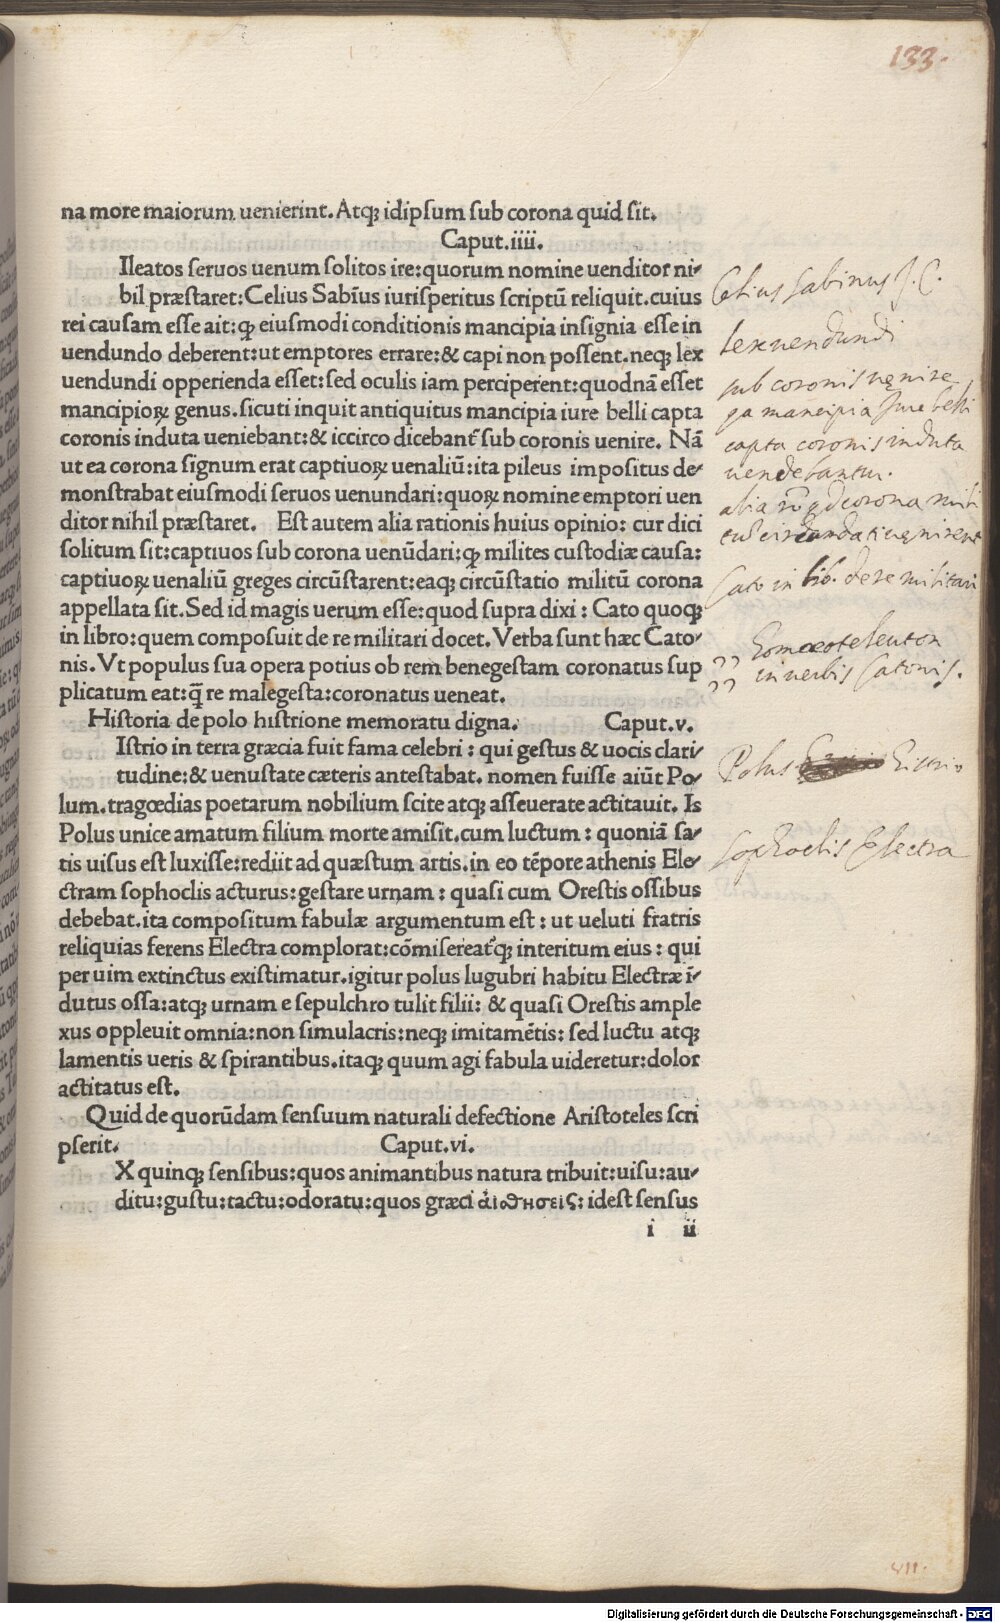 133.
na more maiorum uenierint. Atqꝫ idipsum sub corona quid sit.
Caput.iiii.
Ileatos seruos uenum solitos ire: quorum nomine uenditor ni-
hil præstaret: Celius Sabīus iurisperitus scriptū reliquit. cuius
rei causam esse ait: ꝙ eiusmodi conditionis mancipia insignia esse in
uendundo deberent: ut emptores errare: & capi non possent. neqꝫ lex
uendundi opperienda esset: sed oculis iam perciperent: quodnā esset
mancipioꝝ genus. sicuti inquit antiquitus mancipia iure belli capta
coronis induta ueniebant: & iccirco dicebant̄ sub coronis uenire. Nā
ut ea corona signum erat captiuoꝝ uenaliū: ita pileus impositus de-
monstrabat eiusmodi seruos uenundari: quoꝝ nomine emptori uen
ditor nihil præstaret. Est autem alia rationis huius opinio: cur dici
solitum sit: captiuos sub corona uenūdari: ꝙ milites custodiæ causa:
captiuoꝝ uenaliū greges circūstarent: eaqꝫ circūstatio militū corona
appellata sit. Sed id magis uerum esse: quod supra dixi: Cato quoqꝫ
in libro: quem composuit de re militari docet. Verba sunt hæc Cato-
nis. Vt populus sua opera potius ob rem benegestam coronatus sup
plicatum eat: q̄̃ re malegesta: coronatus ueneat.
Historia de polo histrione memoratu digna. Caput.v.
Istrio in terra græcia fuit fama celebri: qui gestus & uocis clari-
tudine: & uenustate cæteris antestabat. nomen fuisse aiūt Po-
lum. tragœdias poetarum nobilium scite atqꝫ asseuerate actitauit. Is
Polus unice amatum filium morte amisit. cum luctum: quoniā sa-
tis uisus est luxisse: rediit ad quæstum artis. in eo tēpore athenis Ele-
ctram sophoclis acturus: gestare urnam: quasi cum Orestis ossibus
debebat. ita compositum fabulæ argumentum est: ut ueluti fratris
reliquias ferens Electra complorat: cōmisereat̄qꝫ interitum eius: qui
per uim extinctus existimatur. igitur polus lugubri habitu Electræ ī-
dutus ossa: atqꝫ urnam e sepulchro tulit filii: & quasi Orestis ample
xus oppleuit omnia: non simulacris: neqꝫ imitamētis: sed luctu atqꝫ
lamentis ueris & spirantibus. itaqꝫ quum agi fabula uideretur: dolor
actitatus est.
Quid de quorūdam sensuum naturali defectione Aristoteles scri
pserit. Caput.vi.
X quinqꝫ sensibus: quos animantibus natura tribuit: uisu: au-
ditu: gustu: tactu: odoratu: quos græci ἀιϑησεις: idest sensus
i ii
Celius Sabinus J. C.
lex uendundi
sub coronis uenire
mancipia Jure belli
capta coronis induta
uendebantur.
Cato in lib. de re militari
Homœoteleuton
in uerbis Catonis.
Polus Histrio
Sophoclis Electra
VII.
Digitalisierung gefördert durch die Deutsche Forschungsgemeinschaft - DFG